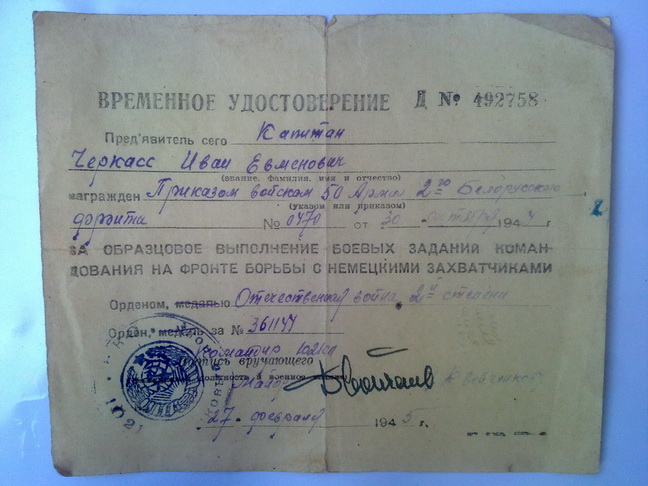 ВРЕМЕННОЕ УДОСТОВЕРЕНИЕ Д № 492758
Пред'явитель сего Капитан
Черкасс Иван Евменович
(звание, фамилия, имя и отчество)
награжден Приказом войскам 50 Армии 2го Белорусского
(указом или приказом)
фронта № 0470 от 30 октября 1944 г.
ЗА ОБРАЗЦОВОЕ ВЫПОЛНЕНИЕ БОЕВЫХ ЗАДАНИЙ КОМАН-
ДОВАНИЯ НА ФРОНТЕ БОРЬБЫ С НЕМЕЦКИМИ ЗАХВАТЧИКАМИ
Орденом, медалью Отечественная война 2й степени
Орден, медаль за № 361147
Командир 1021
Подпись вручающего
должность и военное
27 февраля 1945 г.